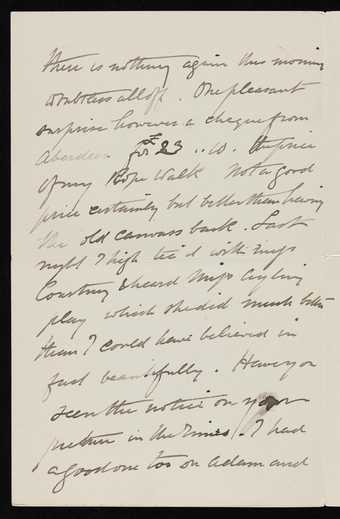 there is nothing again this morning
doubtless all off. One pleasant
surprise however a cheque from
Aberdeen for £23 .. 10. the price
of my Rope Walk Not a good
price certainly but better than having
the old canvass back. Last
night I high tea'd with
Courtney & heard Miss
play which she did much better
than I could have believed in
fact beautifully. Have you
seen the notice on your
picture in the Times. I had
a good one too on Adam and